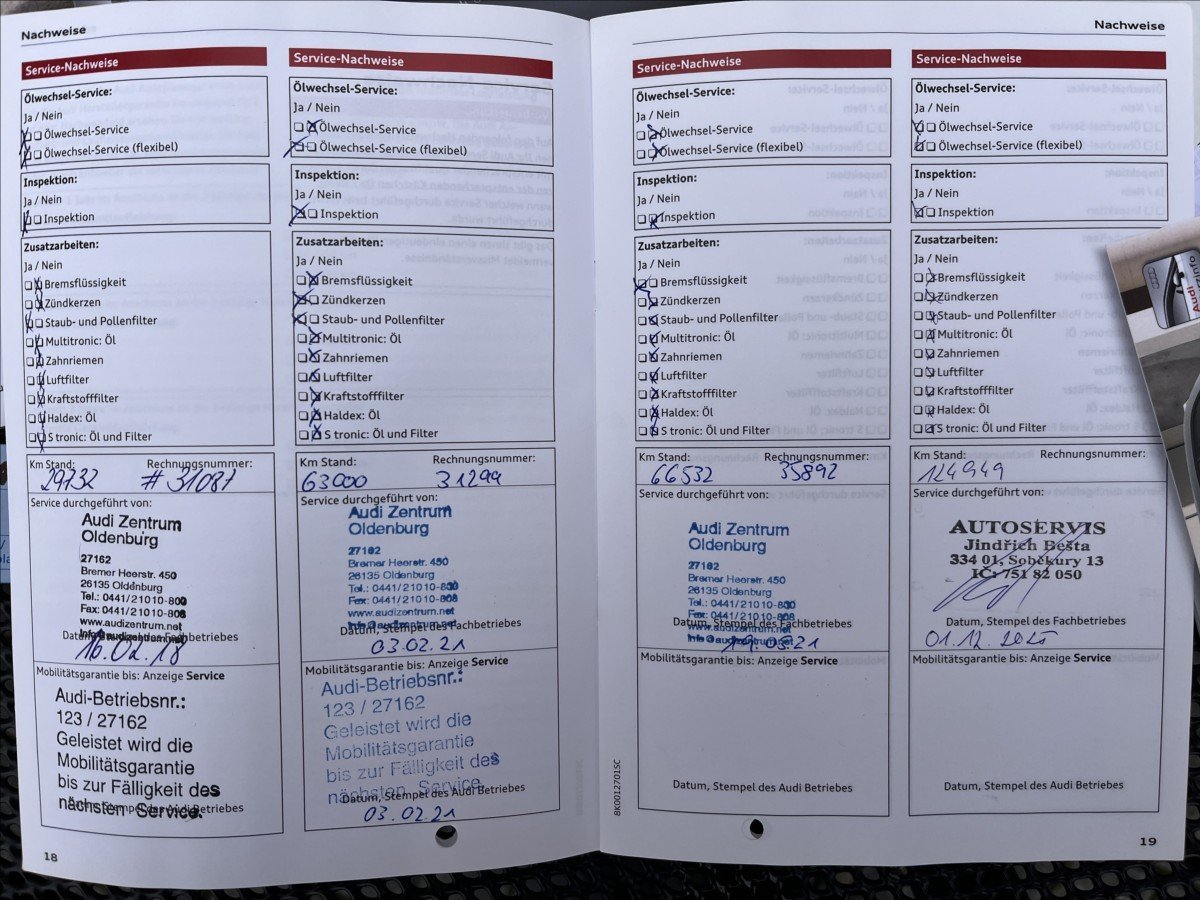 Nachweise
Service-Nachweise
Ölwechsel-Service:
Ja / Nein
Ölwechsel-Service
Ölwechsel-Service (flexibel)
Inspektion:
Ja / Nein
Inspektion
Zusatzarbeiten:
Ja / Nein
Bremsflüssigkeit
Zündkerzen
Staub- und Pollenfilter
Multitronic: Öl
Zahnriemen
Luftfilter
Kraftstofffilter
Haldex: Öl
S tronic: Öl und Filter
Km Stand: Rechnungsnummer:
29732 # 31087
Service durchgeführt von:
Audi Zentrum
Oldenburg
27162
Bremer Heerstr. 450
26135 Oldenburg
Tel.: 0441/21010-800
Fax: 0441/21010-808
www.audizentrum.net
info@audizentrum.net
Datum, Stempel des Fachbetriebes
16.02.18
Mobilitätsgarantie bis: Anzeige Service
Audi-Betriebsnr.:
123 / 27162
Geleistet wird die
Mobilitätsgarantie
bis zur Fälligkeit des
nächsten Service.
Datum, Stempel des Audi Betriebes
18
Service-Nachweise
Ölwechsel-Service:
Ja / Nein
Ölwechsel-Service
Ölwechsel-Service (flexibel)
Inspektion:
Ja / Nein
Inspektion
Zusatzarbeiten:
Ja / Nein
Bremsflüssigkeit
Zündkerzen
Staub- und Pollenfilter
Multitronic: Öl
Zahnriemen
Luftfilter
Kraftstofffilter
Haldex: Öl
S tronic: Öl und Filter
Km Stand: Rechnungsnummer:
63000 31299
Service durchgeführt von:
Audi Zentrum
Oldenburg
27162
Bremer Heerstr. 450
26135 Oldenburg
Tel.: 0441/21010-800
Fax: 0441/21010-808
www.audizentrum.net
info@audizentrum.net
Datum, Stempel des Fachbetriebes
03.02.21
Mobilitätsgarantie bis: Anzeige Service
Audi-Betriebsnr.:
123 / 27162
Geleistet wird die
Mobilitätsgarantie
bis zur Fälligkeit des
nächsten Service.
Datum, Stempel des Audi Betriebes
03.02.21
Nachweise
Service-Nachweise
Ölwechsel-Service:
Ja / Nein
Ölwechsel-Service
Ölwechsel-Service (flexibel)
Inspektion:
Ja / Nein
Inspektion
Zusatzarbeiten:
Ja / Nein
Bremsflüssigkeit
Zündkerzen
Staub- und Pollenfilter
Multitronic: Öl
Zahnriemen
Luftfilter
Kraftstofffilter
Haldex: Öl
S tronic: Öl und Filter
Km Stand: Rechnungsnummer:
66532 35892
Service durchgeführt von:
Audi Zentrum
Oldenburg
27162
Bremer Heerstr. 450
26135 Oldenburg
Tel.: 0441/21010-800
Fax: 0441/21010-808
www.audizentrum.net
info@audizentrum.net
Datum, Stempel des Fachbetriebes
Mobilitätsgarantie bis: Anzeige Service
Datum, Stempel des Audi Betriebes
8K0012701SC
Service-Nachweise
Ölwechsel-Service:
Ja / Nein
Ölwechsel-Service
Ölwechsel-Service (flexibel)
Inspektion:
Ja / Nein
Inspektion
Zusatzarbeiten:
Ja / Nein
Bremsflüssigkeit
Zündkerzen
Staub- und Pollenfilter
Multitronic: Öl
Zahnriemen
Luftfilter
Kraftstofffilter
Haldex: Öl
S tronic: Öl und Filter
Km Stand: Rechnungsnummer:
124949
Service durchgeführt von:
AUTOSERVIS
Jindřich Bešta
334 01, Soběkury 13
IČ: 751 82 050
Datum, Stempel des Fachbetriebes
01.12.2025
Mobilitätsgarantie bis: Anzeige Service
Datum, Stempel des Audi Betriebes
19
Audi